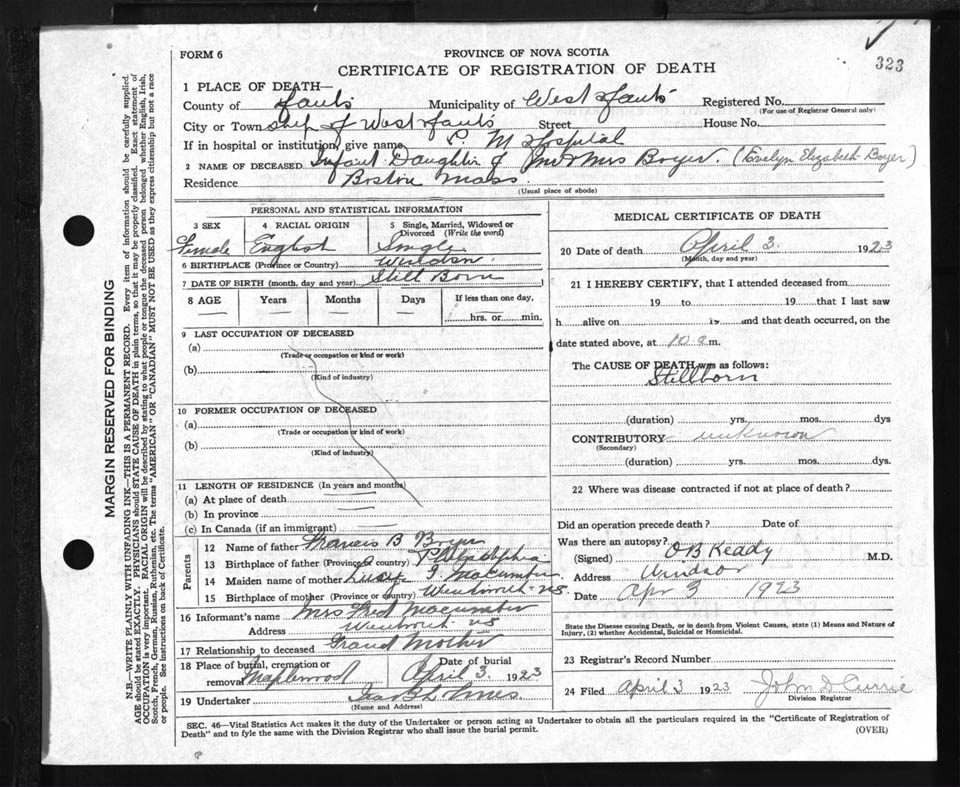 FORM 6
PROVINCE OF NOVA SCOTIA
323
CERTIFICATE OF REGISTRATION OF DEATH
1 PLACE OF DEATH—
County of Hants Municipality of West Hants Registered No.
(For use of Registrar General only)
City or Town of West Hants Street House No.
If in hospital or institution, give name P. M Hospital
2 NAME OF DECEASED Infant Daughter of Mr & Mrs Boyer. (Evelyn Elizabeth Boyer)
Residence Boston Mass.
(Usual place of abode)
PERSONAL AND STATISTICAL INFORMATION
3 SEX 4 RACIAL ORIGIN 5 Single, Married, Widowed or Divorced (Write the word)
Female English Single
6 BIRTHPLACE (Province or Country) Windsor
7 DATE OF BIRTH (month, day and year) Still Born
8 AGE Years Months Days If less than one day,
hrs. or min.
9 LAST OCCUPATION OF DECEASED
(a)
(Trade or occupation or kind of work)
(b)
(Kind of industry)
10 FORMER OCCUPATION OF DECEASED
(a)
(Trade or occupation or kind of work)
(b)
(Kind of industry)
11 LENGTH OF RESIDENCE (In years and months)
(a) At place of death
(b) In province
(c) In Canada (if an immigrant)
Parents
12 Name of father Francis B Boyer
13 Birthplace of father (Province or country) Philadelphia
14 Maiden name of mother Macumber
15 Birthplace of mother (Province or country) Wentworth NS.
16 Informant's name Mrs Fred Macumber
Address Wentworth NS
17 Relationship to deceased Grand Mother
18 Place of burial, cremation or removal Maplewood Date of burial April 3. 1923
19 Undertaker
(Name and Address)
MEDICAL CERTIFICATE OF DEATH
20 Date of death April 3. 1923
(Month, day and year)
21 I HEREBY CERTIFY, that I attended deceased from
19 to 19 that I last saw
h alive on is and that death occurred, on the
date stated above, at 10. a m.
The CAUSE OF DEATH was as follows:
Stillborn
(duration) yrs. mos. dys
CONTRIBUTORY unknown
(Secondary)
(duration) yrs. mos. dys.
22 Where was disease contracted if not at place of death?
Did an operation precede death? Date of
Was there an autopsy?
(Signed) O B Keddy M.D.
Address Windsor
Date Apr 3 1923
State the Disease causing Death, or in death from Violent Causes, state (1) Means and Nature of
Injury, (2) whether Accidental, Suicidal or Homicidal.
23 Registrar's Record Number
24 Filed April 3 1923 John D Currie
Division Registrar
SEC. 46—Vital Statistics Act makes it the duty of the Undertaker or person acting as Undertaker to obtain all the particulars required in the "Certificate of Registration of
Death" and to fyle the same with the Division Registrar who shall issue the burial permit. (OVER)
MARGIN RESERVED FOR BINDING
N.B.—WRITE PLAINLY WITH UNFADING INK—THIS IS A PERMANENT RECORD. Every item of information should be carefully supplied.
AGE should be stated EXACTLY. PHYSICIANS should STATE CAUSE OF DEATH in plain terms, so that it may be properly classified. Exact statement of
OCCUPATION is very important. RACIAL ORIGIN will be described by stating to what people or tongue the deceased person belonged whether English, Irish,
Scotch, French, German, Russian, Ruthenian, etc. The terms "AMERICAN" OR "CANADIAN" MUST NOT BE USED as they express citizenship but not a race
or people. See instructions on back of Certificate.